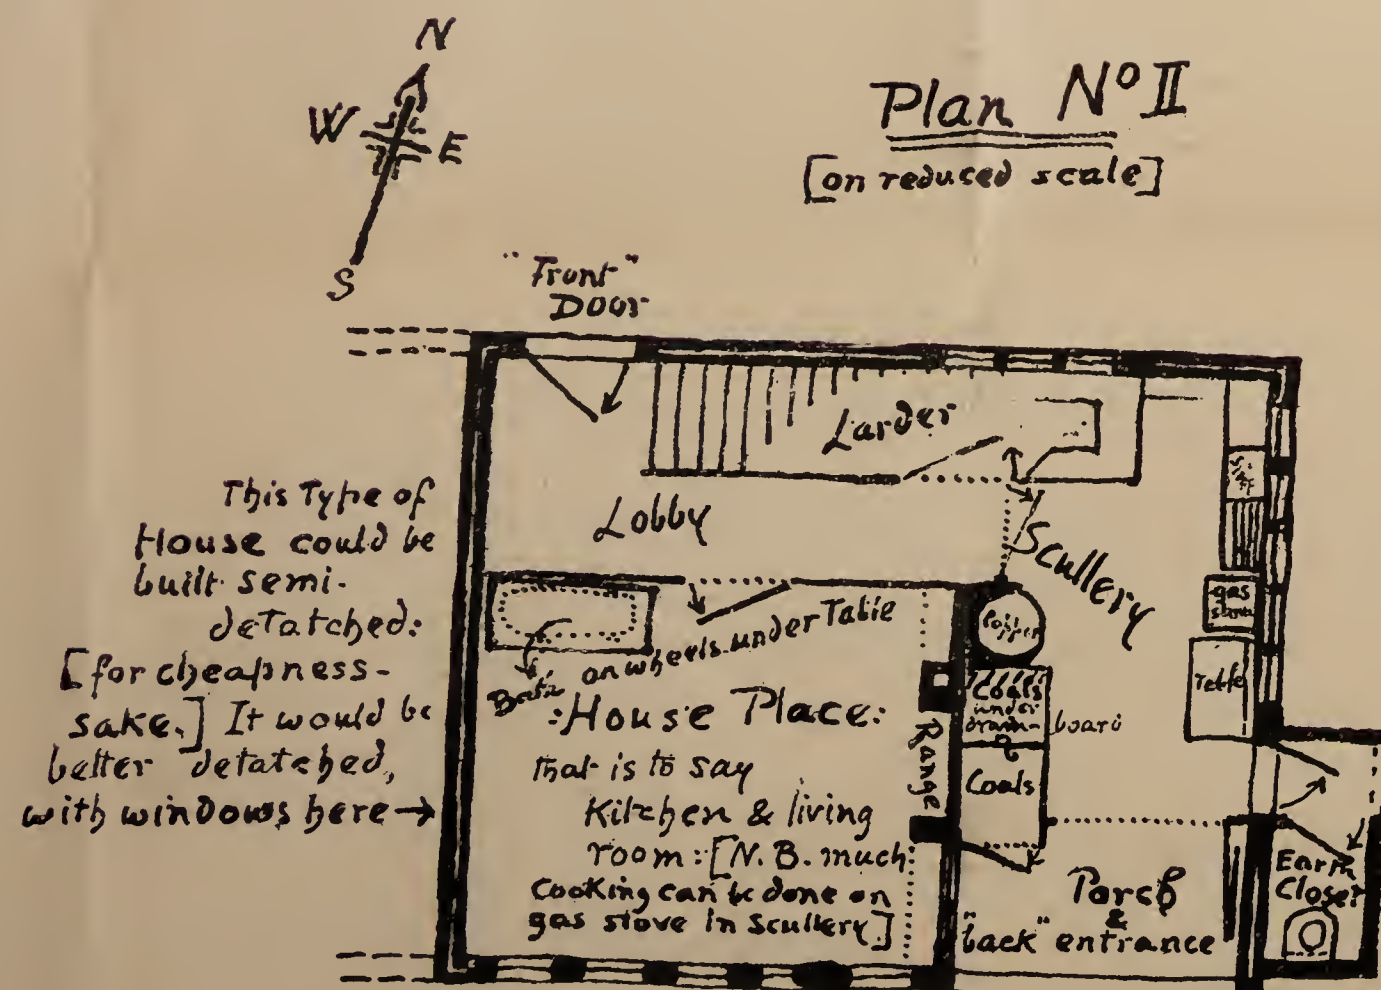 N
W
E
S
Plan Nº II
[on reduced scale]
"Front"
Door
This Type of
House could be
built semi-
detatched:
[for cheapness-
sake.] It would be
better detatched,
with windows here →
Larder
Lobby
Scullery
gas
stove
Table
Copper
Coals
under
drain-
board
Coals
Range
Bath on wheels under Table
:House Place:
that is to say
Kitchen & living
room: [N.B. much
Cooking can be done on
gas stove in Scullery]
Porch
&
"back" entrance
Earth
Closet